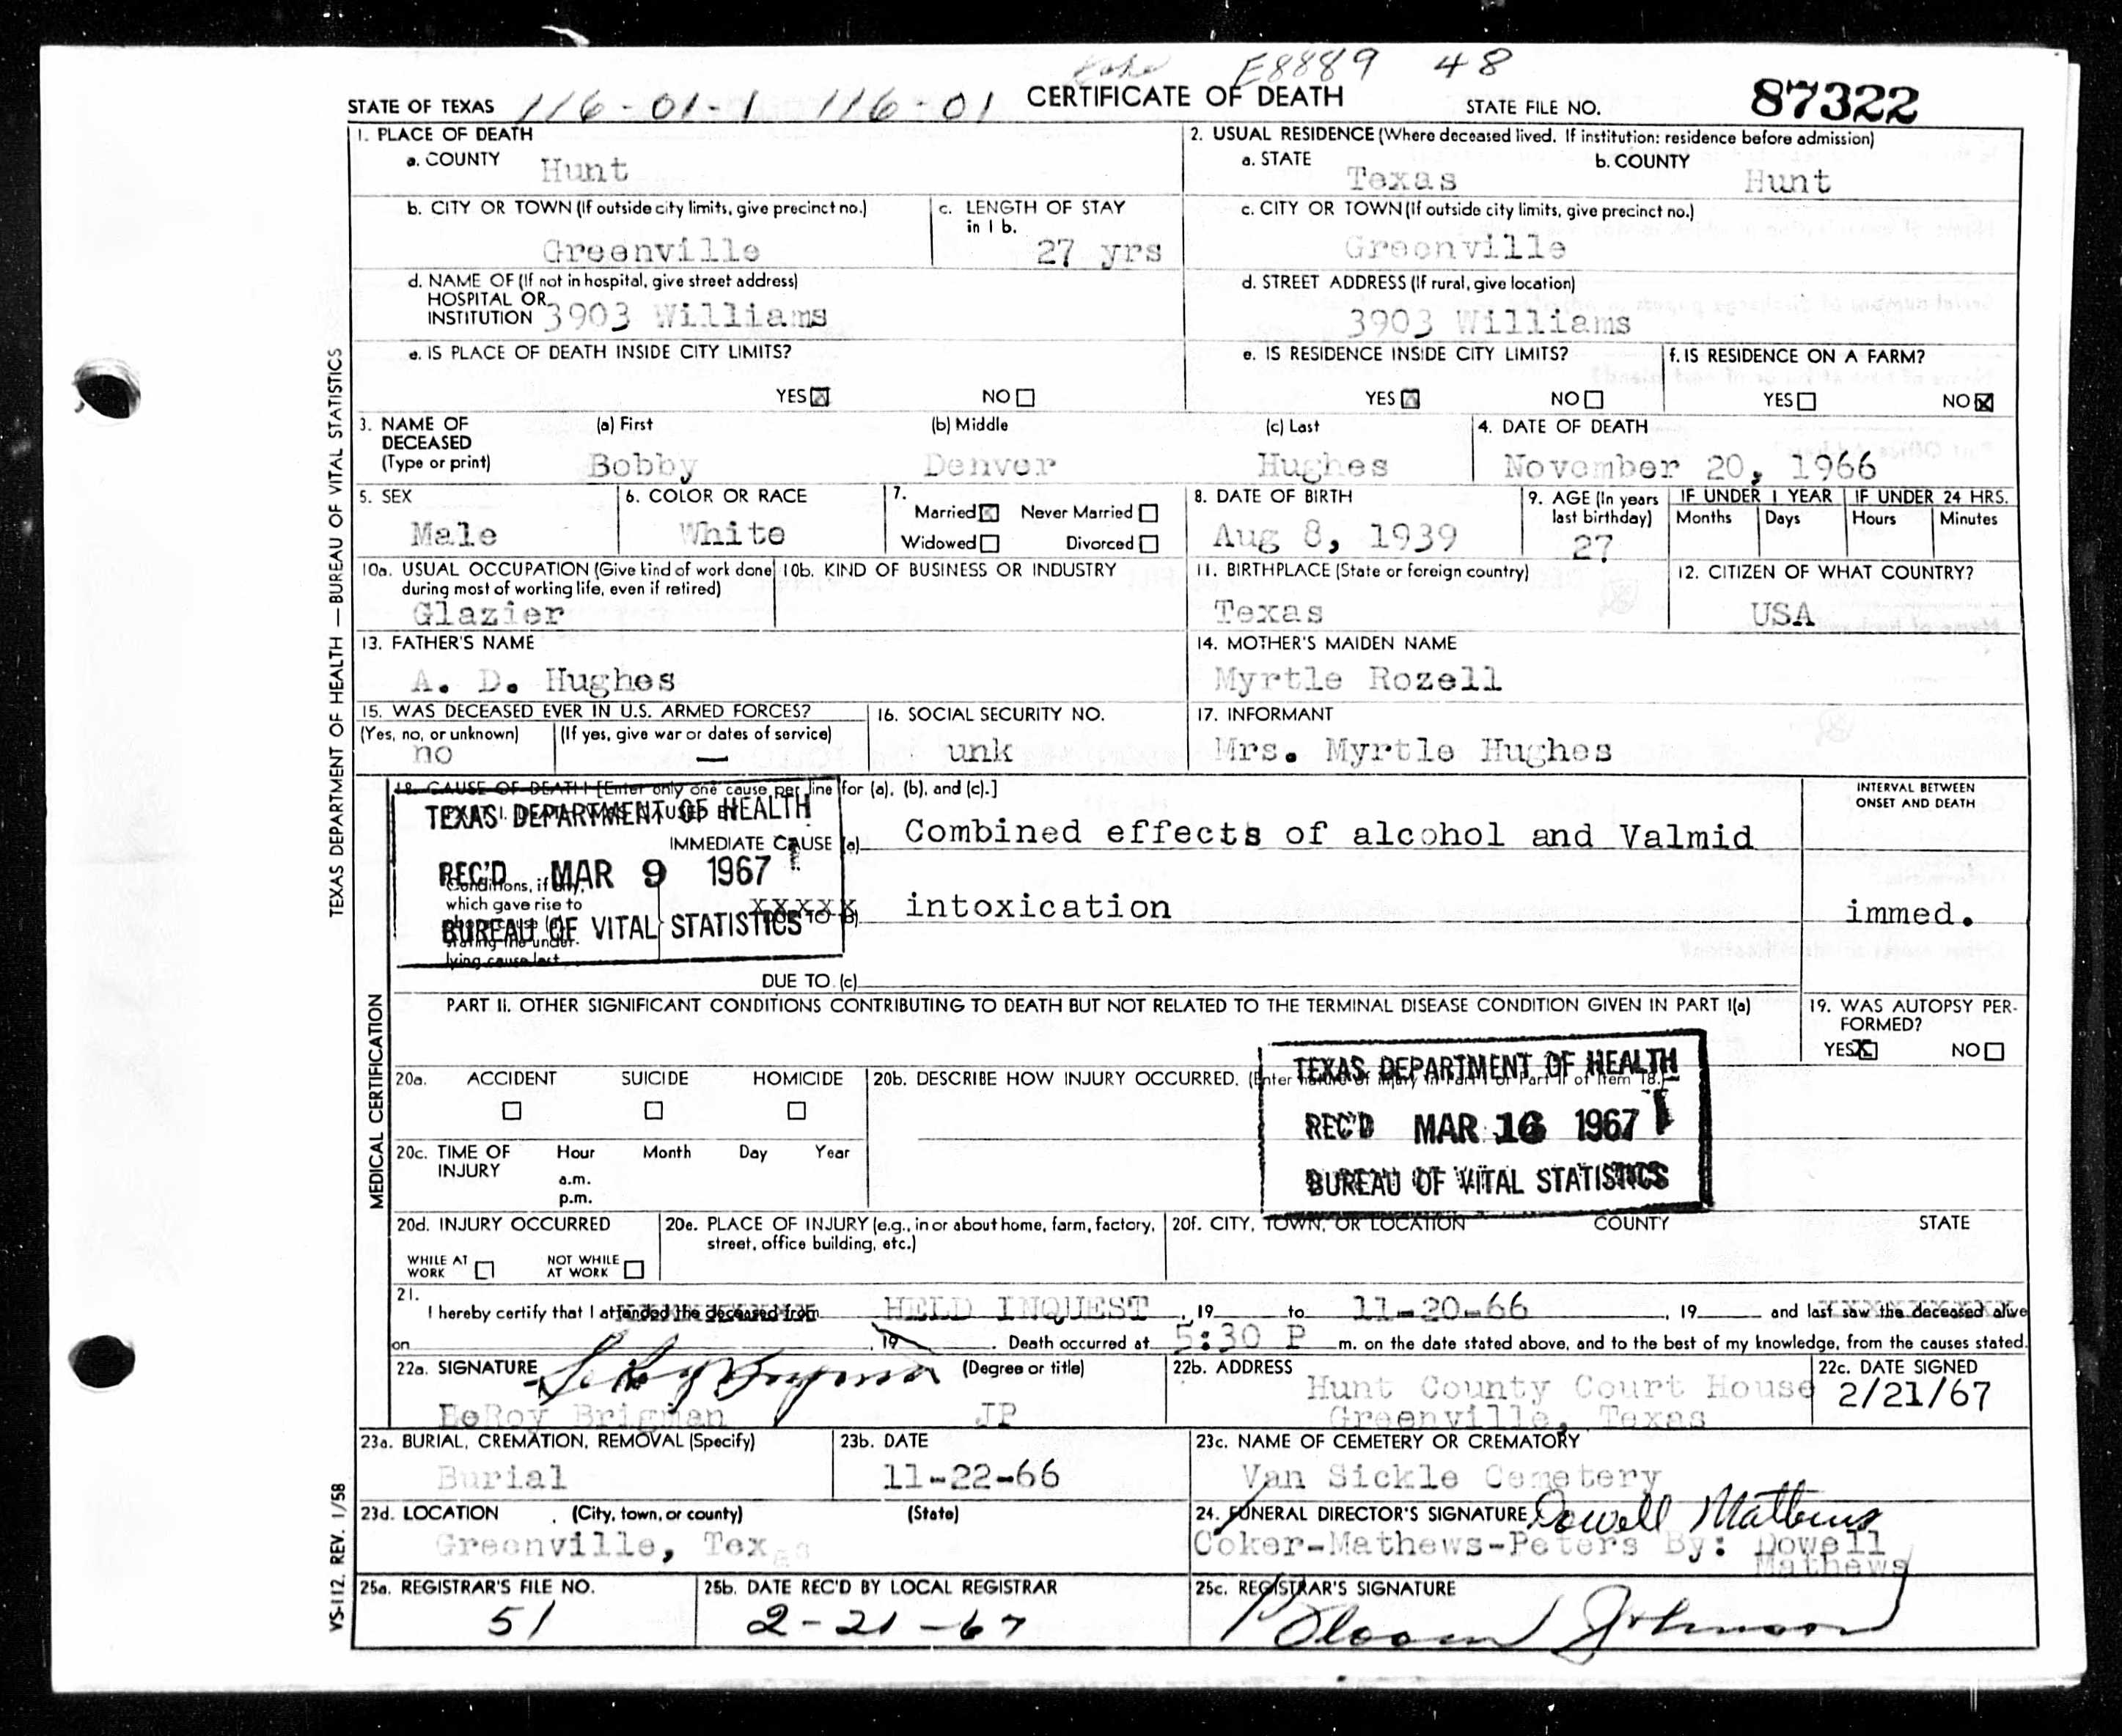 E8889 48
STATE OF TEXAS 116-01-1 116-01 CERTIFICATE OF DEATH STATE FILE NO. 87322
1. PLACE OF DEATH
a. COUNTY Hunt
2. USUAL RESIDENCE (Where deceased lived. If institution: residence before admission)
a. STATE Texas b. COUNTY Hunt
b. CITY OR TOWN (If outside city limits, give precinct no.) Greenville
c. LENGTH OF STAY in 1 b. 27 yrs
c. CITY OR TOWN (If outside city limits, give precinct no.) Greenville
d. NAME OF (If not in hospital, give street address)
HOSPITAL OR
INSTITUTION 3903 Williams
d. STREET ADDRESS (If rural, give location)
3903 Williams
e. IS PLACE OF DEATH INSIDE CITY LIMITS?
YES☒ NO☐
e. IS RESIDENCE INSIDE CITY LIMITS?
YES☒ NO☐
f. IS RESIDENCE ON A FARM?
YES☐ NO☒
3. NAME OF DECEASED (Type or print)
(a) First Bobby
(b) Middle Denver
(c) Last Hughes
4. DATE OF DEATH
November 20, 1966
5. SEX
Male
6. COLOR OR RACE
White
7.
Married☒ Never Married☐
Widowed☐ Divorced☐
8. DATE OF BIRTH
Aug 8, 1939
9. AGE (In years last birthday)
27
IF UNDER 1 YEAR
Months Days
IF UNDER 24 HRS.
Hours Minutes
10a. USUAL OCCUPATION (Give kind of work done during most of working life, even if retired)
Glazier
10b. KIND OF BUSINESS OR INDUSTRY
11. BIRTHPLACE (State or foreign country)
Texas
12. CITIZEN OF WHAT COUNTRY?
USA
13. FATHER'S NAME
A. D. Hughes
14. MOTHER'S MAIDEN NAME
Myrtle Rozell
15. WAS DECEASED EVER IN U.S. ARMED FORCES?
(Yes, no, or unknown) (If yes, give war or dates of service)
no —
16. SOCIAL SECURITY NO.
unk
17. INFORMANT
Mrs. Myrtle Hughes
18. CAUSE OF DEATH [Enter only one cause per line for (a), (b), and (c).]
INTERVAL BETWEEN ONSET AND DEATH
TEXAS DEPARTMENT OF HEALTH
REC'D MAR 9 1967
BUREAU OF VITAL STATISTICS
IMMEDIATE CAUSE (a) Combined effects of alcohol and Valmid
Conditions, if any,
which gave rise to
above cause (a)
stating the under-
lying cause last
XXXXX
DUE TO (b) intoxication
immed.
DUE TO (c)
PART II. OTHER SIGNIFICANT CONDITIONS CONTRIBUTING TO DEATH BUT NOT RELATED TO THE TERMINAL DISEASE CONDITION GIVEN IN PART I(a)
19. WAS AUTOPSY PERFORMED?
YES☒ NO☐
20a. ACCIDENT SUICIDE HOMICIDE
☐ ☐ ☐
20b. DESCRIBE HOW INJURY OCCURRED. (Enter nature of injury in Part I or Part II of Item 18.)
TEXAS DEPARTMENT OF HEALTH
REC'D MAR 16 1967
BUREAU OF VITAL STATISTICS
20c. TIME OF INJURY Hour Month Day Year
a.m.
p.m.
20d. INJURY OCCURRED
WHILE AT WORK ☐ NOT WHILE AT WORK ☐
20e. PLACE OF INJURY (e.g., in or about home, farm, factory, street, office building, etc.)
20f. CITY, TOWN, OR LOCATION COUNTY STATE
21.
I hereby certify that I attended the deceased from HELD INQUEST, 19 to 11-20-66, 19 and last saw the deceased alive
on , 19 . Death occurred at 5:30 P m. on the date stated above, and to the best of my knowledge, from the causes stated.
22a. SIGNATURE LeRoy Brigman (Degree or title)
LeRoy Brigman JP
22b. ADDRESS
Hunt County Court House
Greenville, Texas
22c. DATE SIGNED
2/21/67
23a. BURIAL, CREMATION, REMOVAL (Specify)
Burial
23b. DATE
11-22-66
23c. NAME OF CEMETERY OR CREMATORY
Van Sickle Cemetery
23d. LOCATION (City, town, or county) (State)
Greenville, Texas
24. FUNERAL DIRECTOR'S SIGNATURE Dowell Mathews
Coker-Mathews-Peters By: Dowell
Mathews
25a. REGISTRAR'S FILE NO.
51
25b. DATE REC'D BY LOCAL REGISTRAR
2-21-67
25c. REGISTRAR'S SIGNATURE
Johnson
TEXAS DEPARTMENT OF HEALTH — BUREAU OF VITAL STATISTICS
MEDICAL CERTIFICATION
VS-112. REV. 1/58